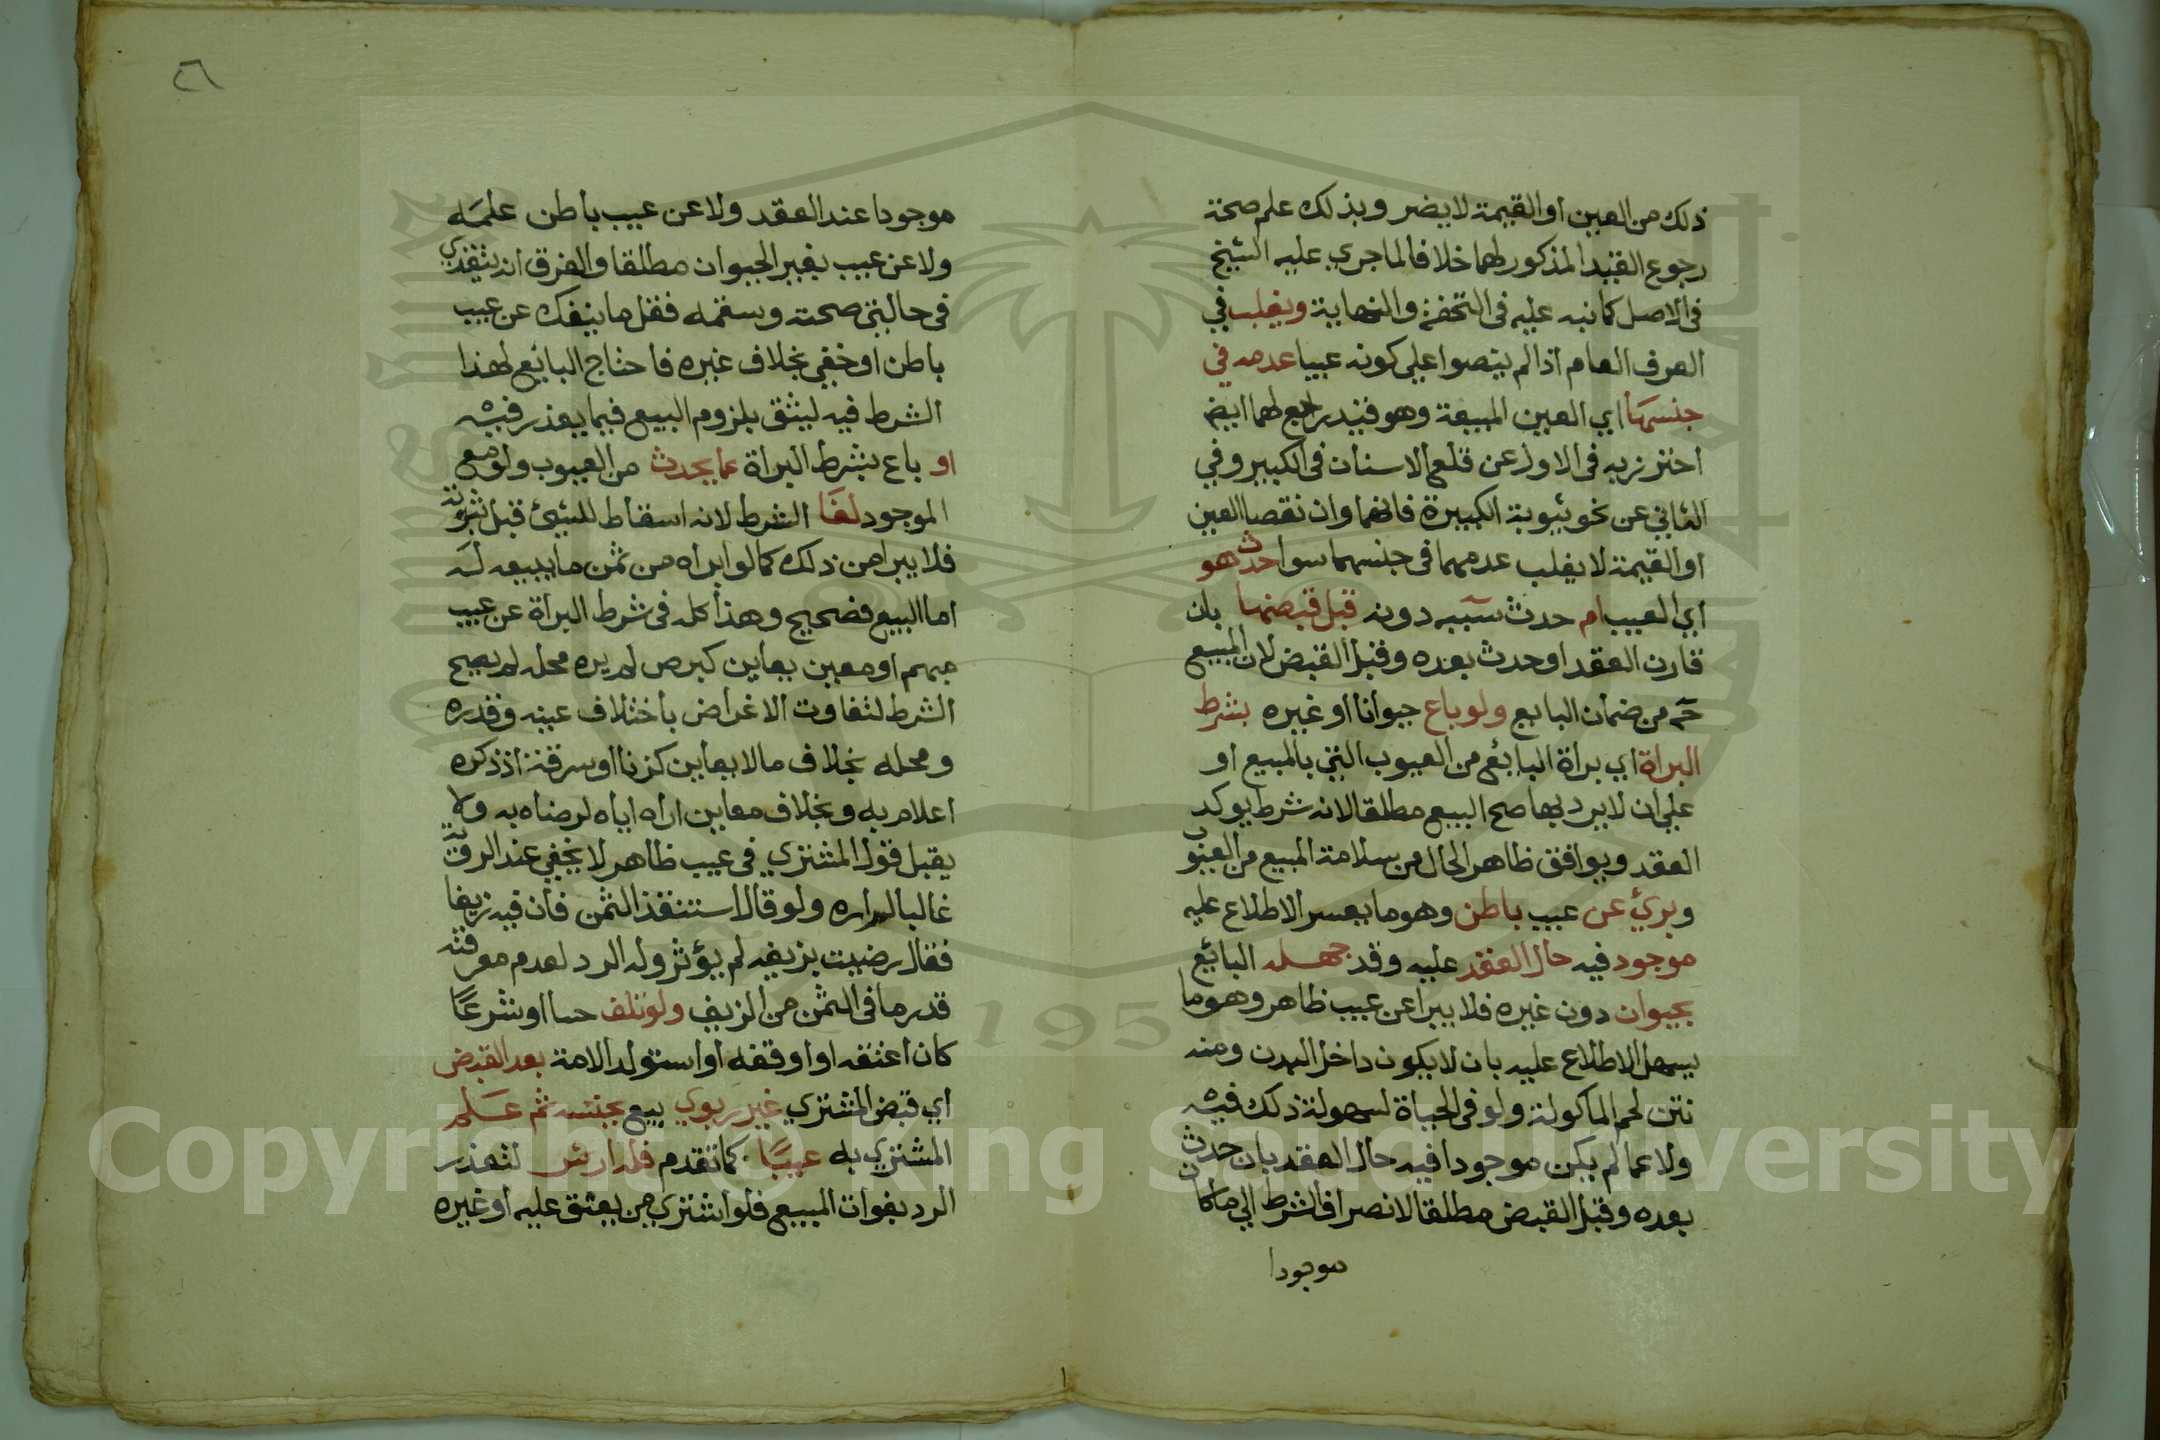 ذلك من العين او القيمة لا يضر وبذلك علم صحة
رجوع القيد المذكور لهما خلافا لما جري عليه الشيخ
في الاصل كما نبه عليه في التحفة والنهاية ويغلب في
العرف العام اذا لم ينصوا علي كونه عيبا عدمه في
جنسها اي العين المبيعة وهو قيد راجع لهما ايضا
احترز به في الاول عن قلع الاسنان في الكبير وفي
الثاني عن نحو ثيوبة الكبيرة فانهما وان نقصا العين
او القيمة لا يغلب عدمهما في جنسهما سوا احدث هو
اي العيب ام حدث سببه دونه قبل قبضها بان
قارن العقد او حدث بعده وقبل القبض لان المبيع
ح من ضمان البايع ولو باع حيوانا او غيره بشرط
البراة اي براة البائع من العيوب التي بالمبيع او
علي ان لا يرد بها صح البيع مطلقا لانه شرط يوكد
العقد ويوافق ظاهر الحال من سلامة المبيع من العيوب
وبرئ عن عيب باطن وهو ما يعسر الاطلاع عليه
موجود فيه حال العقد عليه وقد جهله البائع
بحيوان دون غيره فلا يبرا عن عيب ظاهر وهو ما
يسهل الاطلاع عليه بان لا يكون داخل البدن ومنه
نتن لحم الماكولة ولو في الحياة لسهولة ذلك فيه
ولا عما لم يكن موجودا فيه حال العقد بان حدث
بعده وقبل القبض مطلقا لانصراف الشرط الي ما كان
موجودا
٢٦
موجودا عند العقد ولا عن عيب باطن علمه
ولا عن عيب بغير الحيوان مطلقا والفرق انه يتغذي
في حالتي صحته وسقمه فقل ما ينفك عن عيب
باطن او خفي بخلاف غيره فاحتاج البائع لهذا
الشرط فيه ليثق بلزوم البيع فيما يعذر فيه
او باع بشرط البراة عما يحدث من العيوب ولو مع
الموجود لغا الشرط لانه اسقاط للشيئ قبل ثبوته
فلا يبرا من ذلك كما لو ابراه من ثمن ما يبيعه له
اما البيع فصحيح وهذا كله في شرط البراة عن عيب
مبهم او معين يعاين كبرص لم يره محله لم يصح
الشرط لتفاوت الاغراض باختلاف عينه وقدره
ومحله بخلاف ما لا يعاين كزنا او سرقة اذ ذكره
اعلام به وبخلاف معاين اراه اياه لرضاه به ولا
يقبل قول المشتري في عيب ظاهر لا يخفي عند الروية
غالبا لم اره ولو قال استنقذ الثمن فان فيه زيفا
فقال رضيت بزيفه لم يؤثر وله الرد لعدم معرفته
قدر ما في الثمن من الزيف ولو تلف حسا او شرعًا
كان اعتقه او اوقفه او استولد الامة بعد القبض
اي قبض المشتري غير ربوي بيع بجنسه ثم علم
المشتري به عيبًا كما تقدم فله ارش لتعذر
الرد بفوات المبيع فلو اشتري من يعتق عليه او غيره